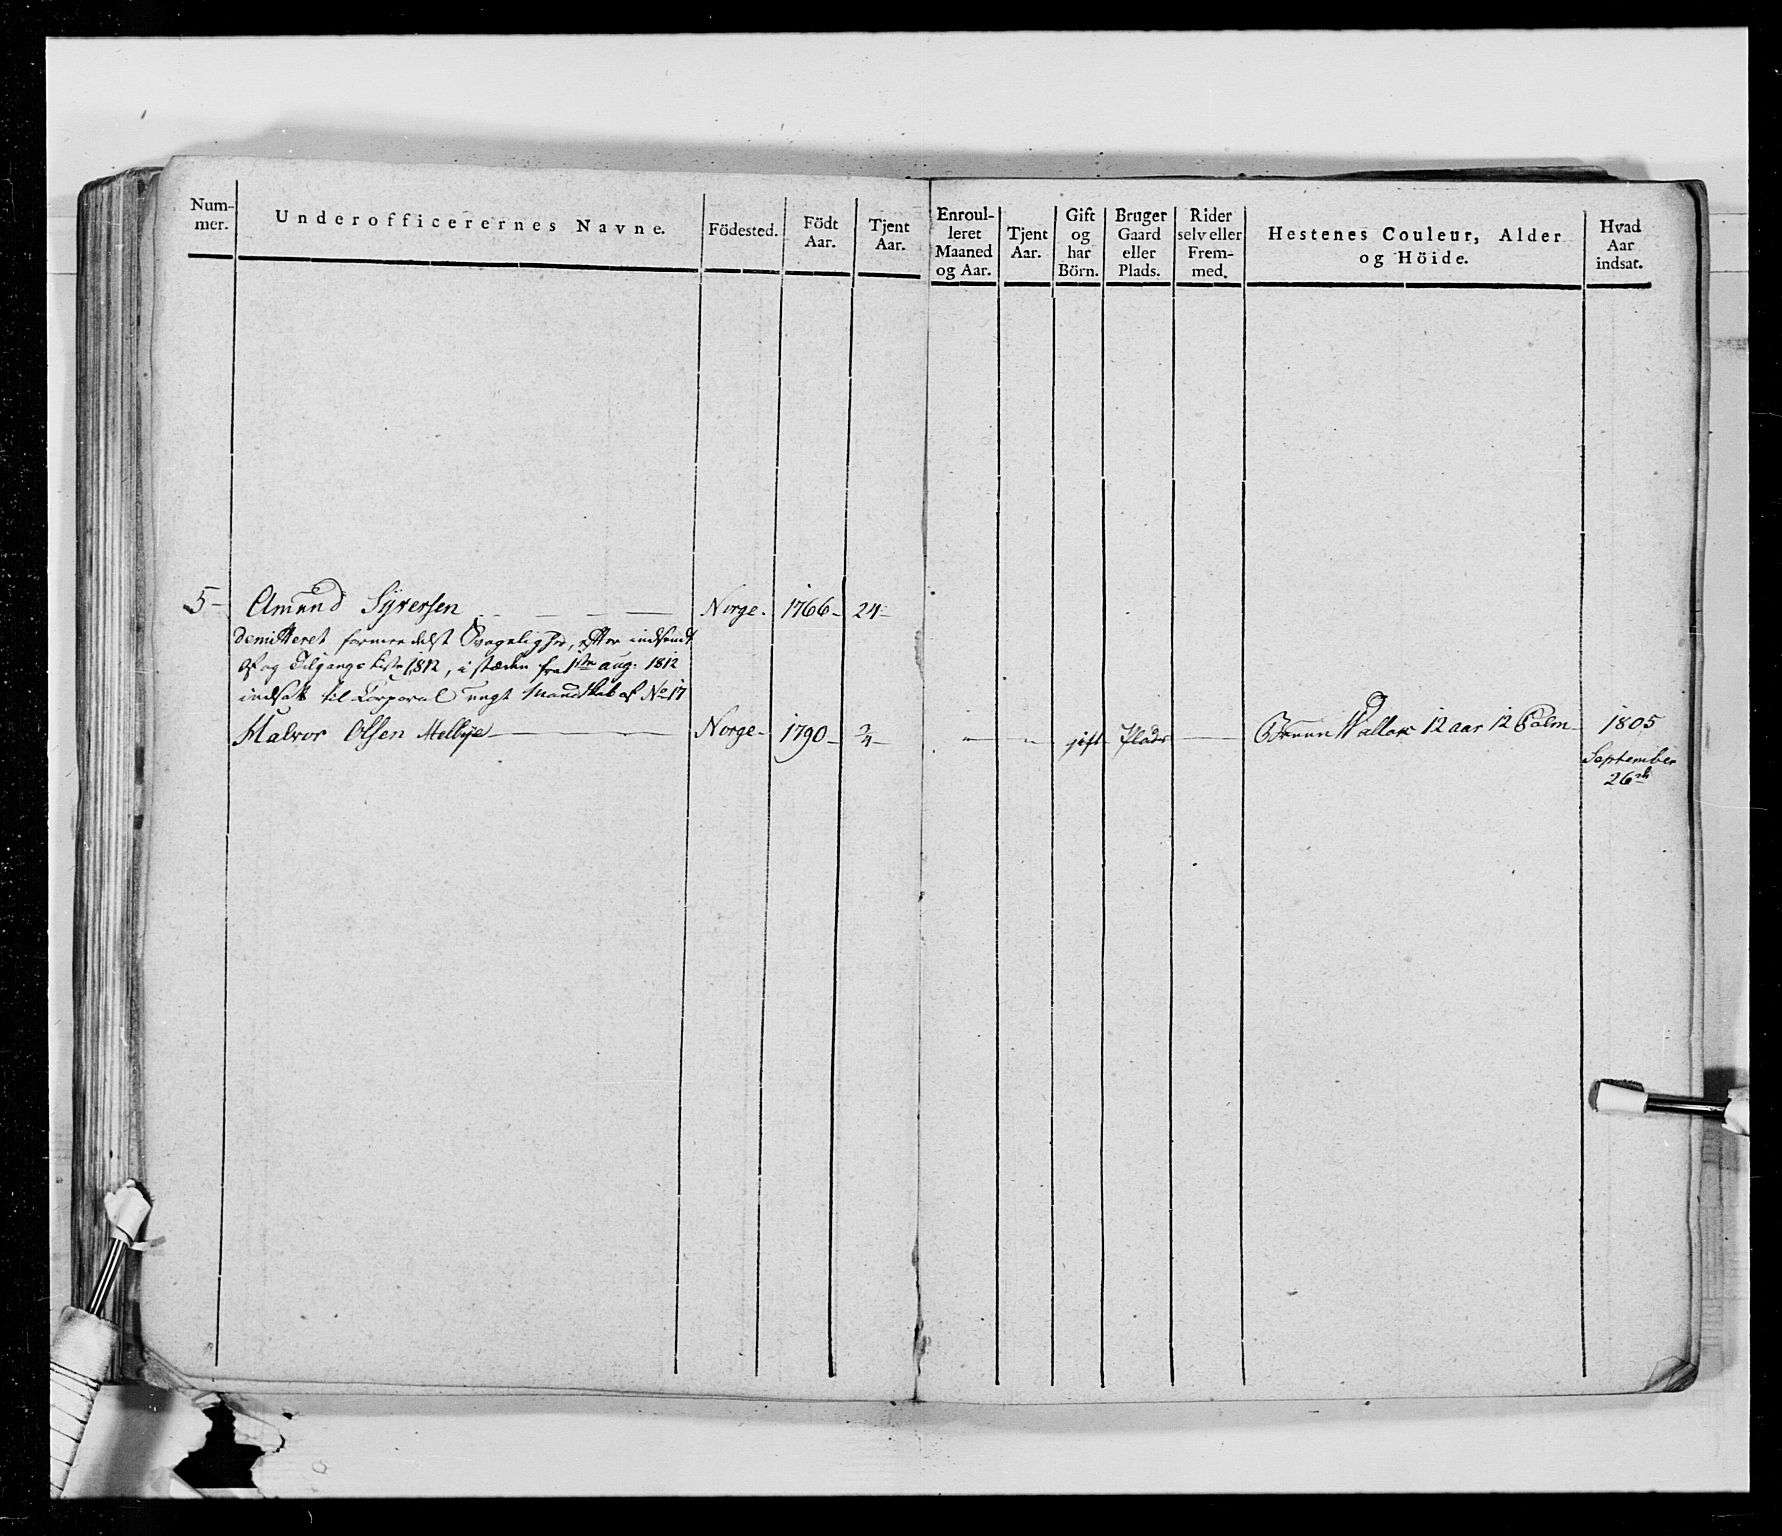 Num-
mer.
Underofficerernes Navne.
Födested.
Födt
Aar.
Tjent
Aar.
Enroul-
leret
Maaned
og Aar.
Tjent
Aar.
Gift
og
har
Börn.
Bruger
Gaard
eller
Plads.
Rider
selv eller
Frem-
med.
Hestenes Couleur, Alder
og Höide.
Hvad
Aar
indsat.
5 - Amund Syversen - - - - Norge. 1766 - 24 -
demitteret formedelst Svagelighed, efter indsendt
Af og Tilgangs Liste 1812, i stæden fra 1ste aug. 1812
indsatt til Corporal ungt Mandskab af No 17
Halvor Olsen Melbye - - - Norge - 1790 - 3/4 - " " gift Plads - Bruun Wallak 12 aar 12 Palm - 1805
September
26de